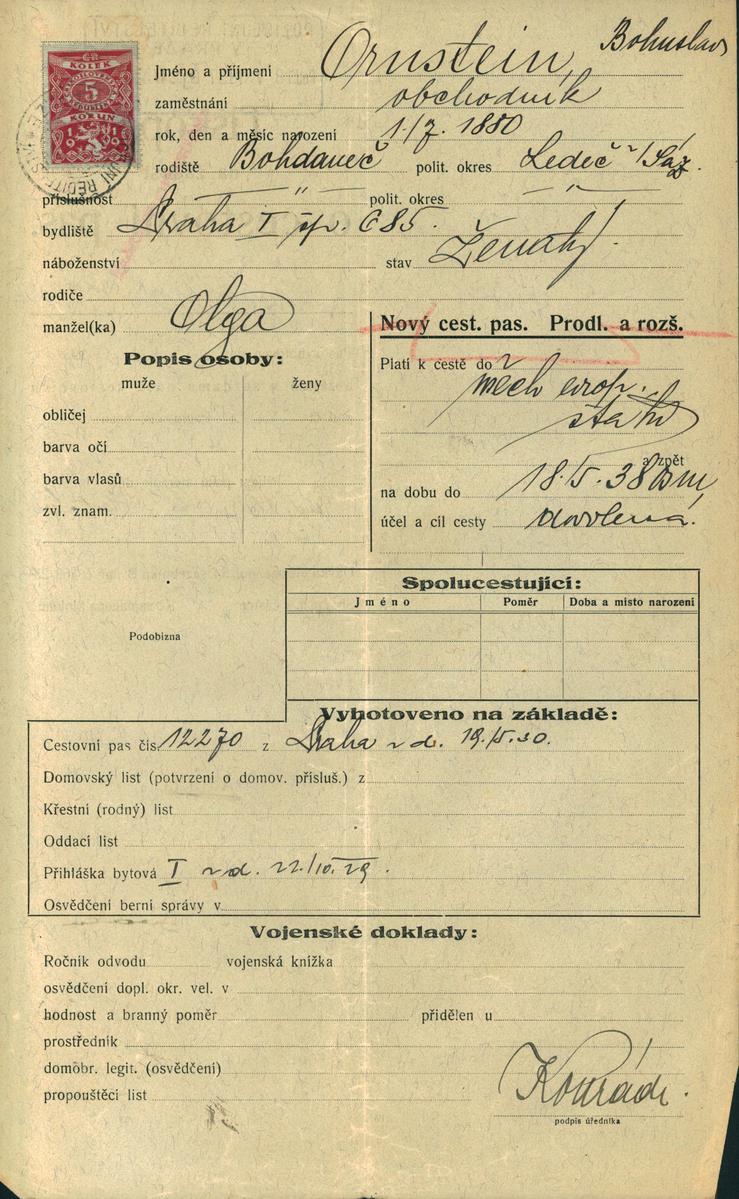 KOLEK
5
KORUN
1919
Bohuslav
Jméno a příjmení Ornstein,
zaměstnání obchodník
rok, den a měsíc narození 1./7. 1880
rodiště Bohdaneč polit. okres Ledeč n/Sáz.
příslušnost —"— polit. okres —"—
bydliště Praha I čp. 685.
náboženství stav Ženatý.
rodiče
manžel(ka) Olga
Nový cest. pas. Prodl. a rozš.
Popis osoby:
muže ženy
obličej
barva očí
barva vlasů
zvl. znam.
Platí k cestě do
všech evrop.
států
a zpět
na dobu do 18.5.38
účel a cíl cesty dovolená.
Podobizna
Spolucestující:
Jméno Poměr Doba a místo narození
Vyhotoveno na základě:
Cestovní pas čís. 12270 z Praha z d. 19./5.30.
Domovský list (potvrzení o domov. přísluš.) z
Křestní (rodný) list
Oddací list
Přihláška bytová I z d. 22./10.29.
Osvědčení berní správy v
Vojenské doklady:
Ročník odvodu vojenská knížka
osvědčení dopl. okr. vel. v
hodnost a branný poměr přidělen u
prostředník
domobr. legit. (osvědčení)
propouštěcí list
Konrád.
podpis úředníka